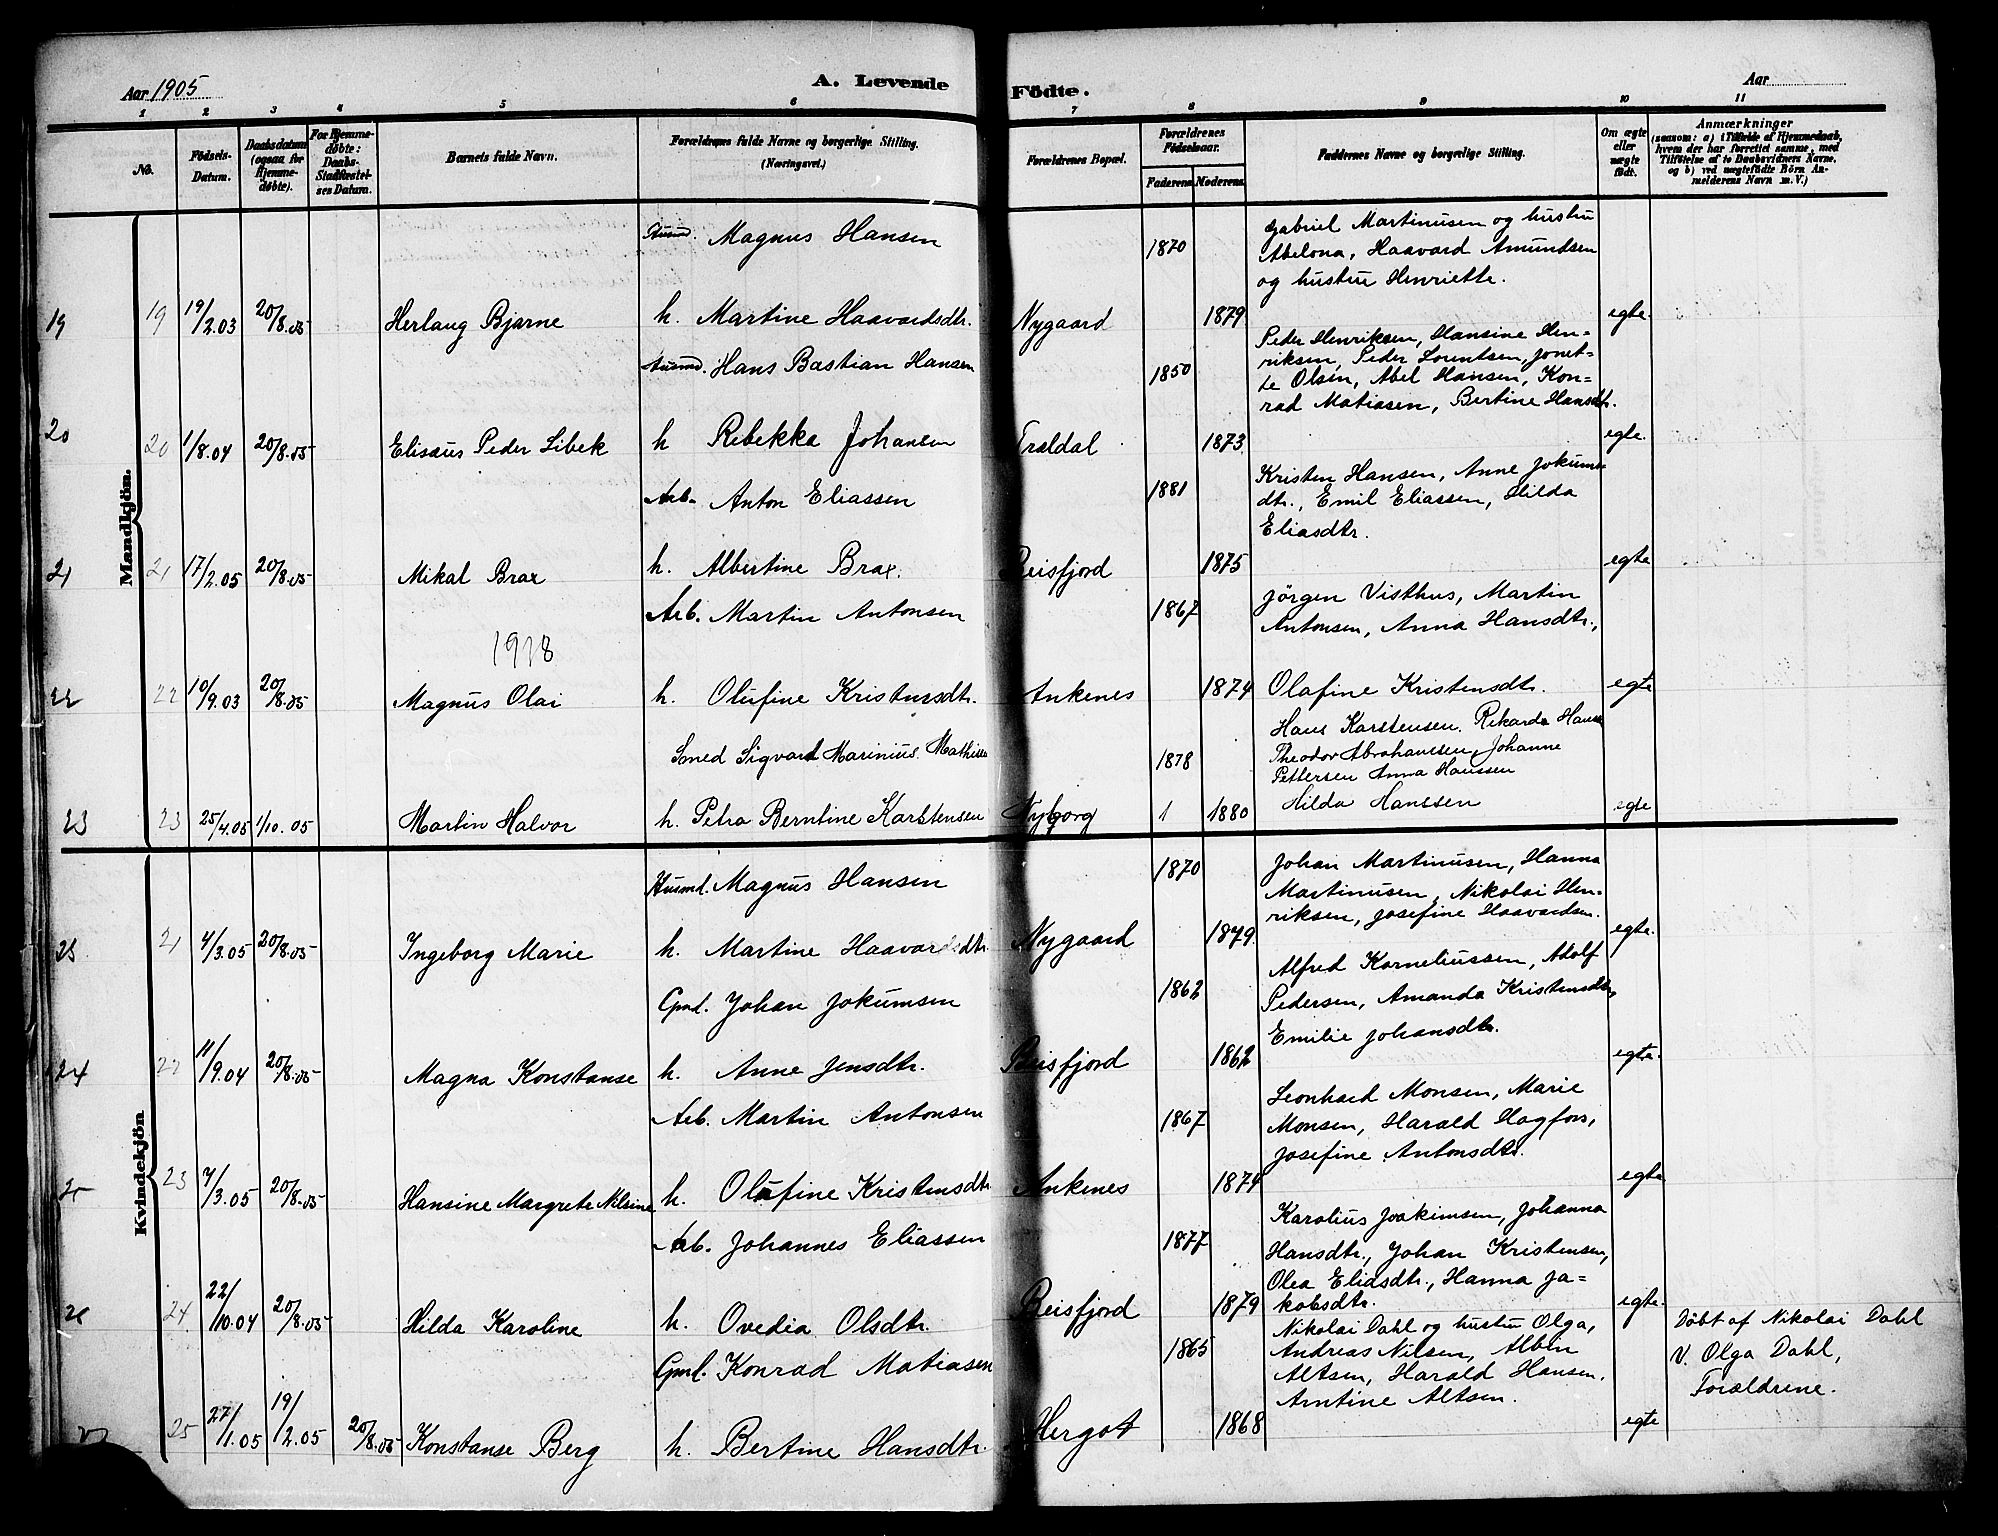 Aar 1905
A. Levende
Födte.
Aar
1 2 3 4 5 6 7 8 9 10 11
No.
Födsels-
Datum.
Daabsdatum
(ogsaa for
Hjemme-
döbte).
For Hjemme-
döbte:
Daabs-
Stadfæstel-
ses Datum.
Barnets fulde Navn.
Forældrenes fulde Navne og borgerlige Stilling.
(Næringsvei.)
Forældrenes Bopæl.
Forældrenes
Födselsaar.
Faderens. Moderens.
Faddernes Navne og borgerlige Stilling.
Om ægte
eller
uægte
födt.
Anmærkninger
(saasom: a) i Tilfælde af Hjemmedaab,
hvem der har forrettet samme, med
Tilföielse af to Daabsvidners Navne,
og b) ved uægtefödte Börn An-
melderens Navn m. V.)
Mandkjön.
Husmd. Magnus Hansen
1870
Gabriel Martinusen og hustru
Abelona, Haavard Amundsen
og hustru Henriette.
19 19 19/2.03 20/8.05 Herlaug Bjarne h. Martine Haavardsdtr. Nygaard 1879 egte.
Husmd. Hans Bastian Hansen
1850
Peder Henriksen, Hansine Hen-
riksen, Peder Lorentsen, Jonet-
te Olsen, Abel Hansen, Kon-
rad Matiasen, Bertine Hansdtr.
20 20 1/8.04 20/8.05 Elisæus Peder Libek h Rebekka Johansen Traldal 1873 egte.
Arb. Anton Eliassen
1881
Kristen Hansen, Anne Jokums-
dtr., Emil Eliassen, Hilda
Eliasdtr.
21 21 17/2.05 20/8.05 Mikal Brax h. Albertine Brax. Beisfjord 1875 egte
Arb. Martin Antonsen
1867
Jörgen Visthus, Martin
Antonsen, Anna Hansdtr.,
1918
22 22 10/9.03 20/8.05 Magnus Olai h. Olufine Kristensdtr. Ankenes 1874 Olafine Kristensdtr. egte
Smed Sigvart Marinius Mathisen
1878
Hans Karstensen. Rikarda Hansen
Theodor Abrahamsen, Johanne
Pettersen Anna Hanssen
Hilda Hanssen
23 23 25/4.05 1/10.05 Martin Halvor h. Petra Berntine Karstensen Nyborg 1 1880 egte
Kvindekjön
Husmd. Magnus Hansen
1870
Johan Martinusen, Hanna
Martinusen, Nikolai Hen-
riksen, Josefine Haavardsen.
23 21 4/3.05 20/8.05 Ingeborg Marie h. Martine Haavardsdtr. Nygaard 1879. egte.
Gmd. Johan Jokumsen
1862
Alfred Korneliussen, Adolf
Pedersen, Amanda Kristensdtr,
Emilie Johansdtr.
24 22 11/9.04 20/8.05 Magna Konstanse h. Anne Jensdtr. Beisfjord 1862 egte.
Arb. Martin Antonsen
1867
Leonhard Monsen, Marie
Monsen, Harald Hagfors,
Josefine Antonsdtr.
25 23 7/3.05 20/8.05 Hansine Margrete Nilsine h. Olufine Kristensdtr. Ankenes 1874 egte
Arb. Johannes Eliassen
1877
Karolius Joakimsen, Johanna
Hansdtr., Johan Kristensen,
Olea Eliasdtr., Hanna Ja-
kobsdtr.
26 24 22/10.04 20/8.05 Hilda Karoline h. Ovedia Olsdtr. Beisfjord 1879 egte.
Gml. Konrad Matiasen
1865
Nikolai Dahl og hustru Olga,
Andreas Nilsen, Albin
Altsen, Harald Hansen.
Arntine Altsen.
Döbt af Nikolai Dahl
V. Olga Dahl,
Forældrene.
25 27/1.05 19/2.05 20/8.05 Konstanse Berg h. Bertine Hansdtr. Hergot 1868 egte